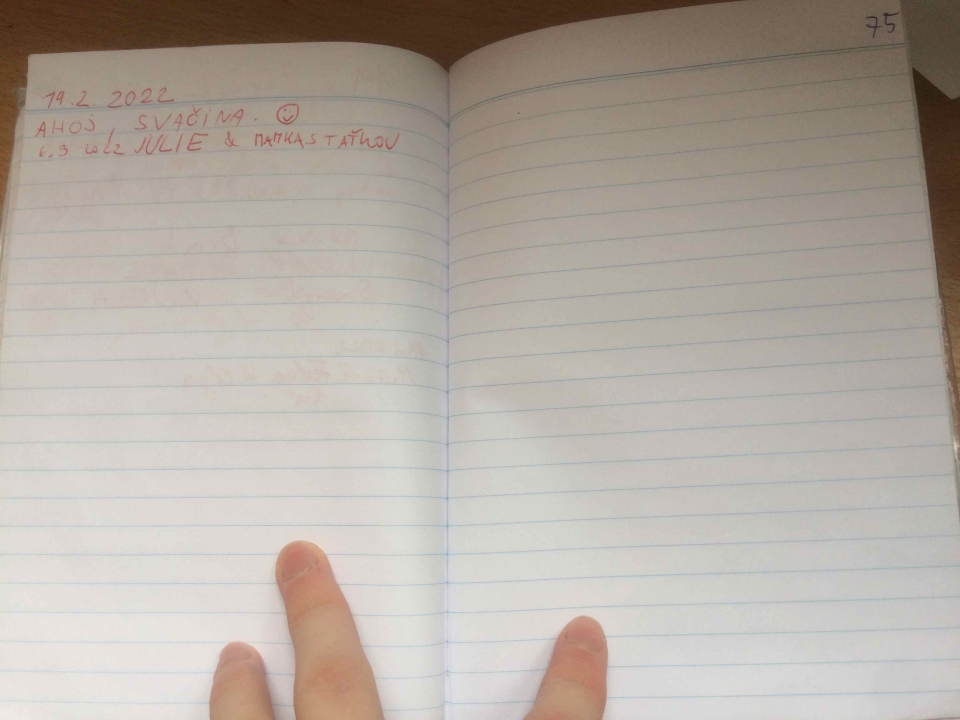 75
19.2. 2022
AHOJ, SVAČINA. ☺
6.3 2022 JULIE &